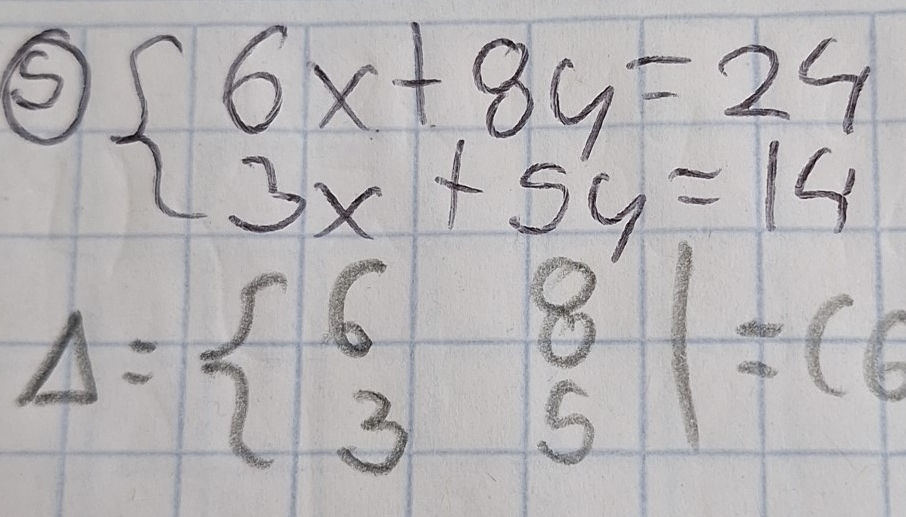 ⑤ { 6x + 8y = 24
3x + 5y = 14
Δ = { 6 8
3 5 | = (6